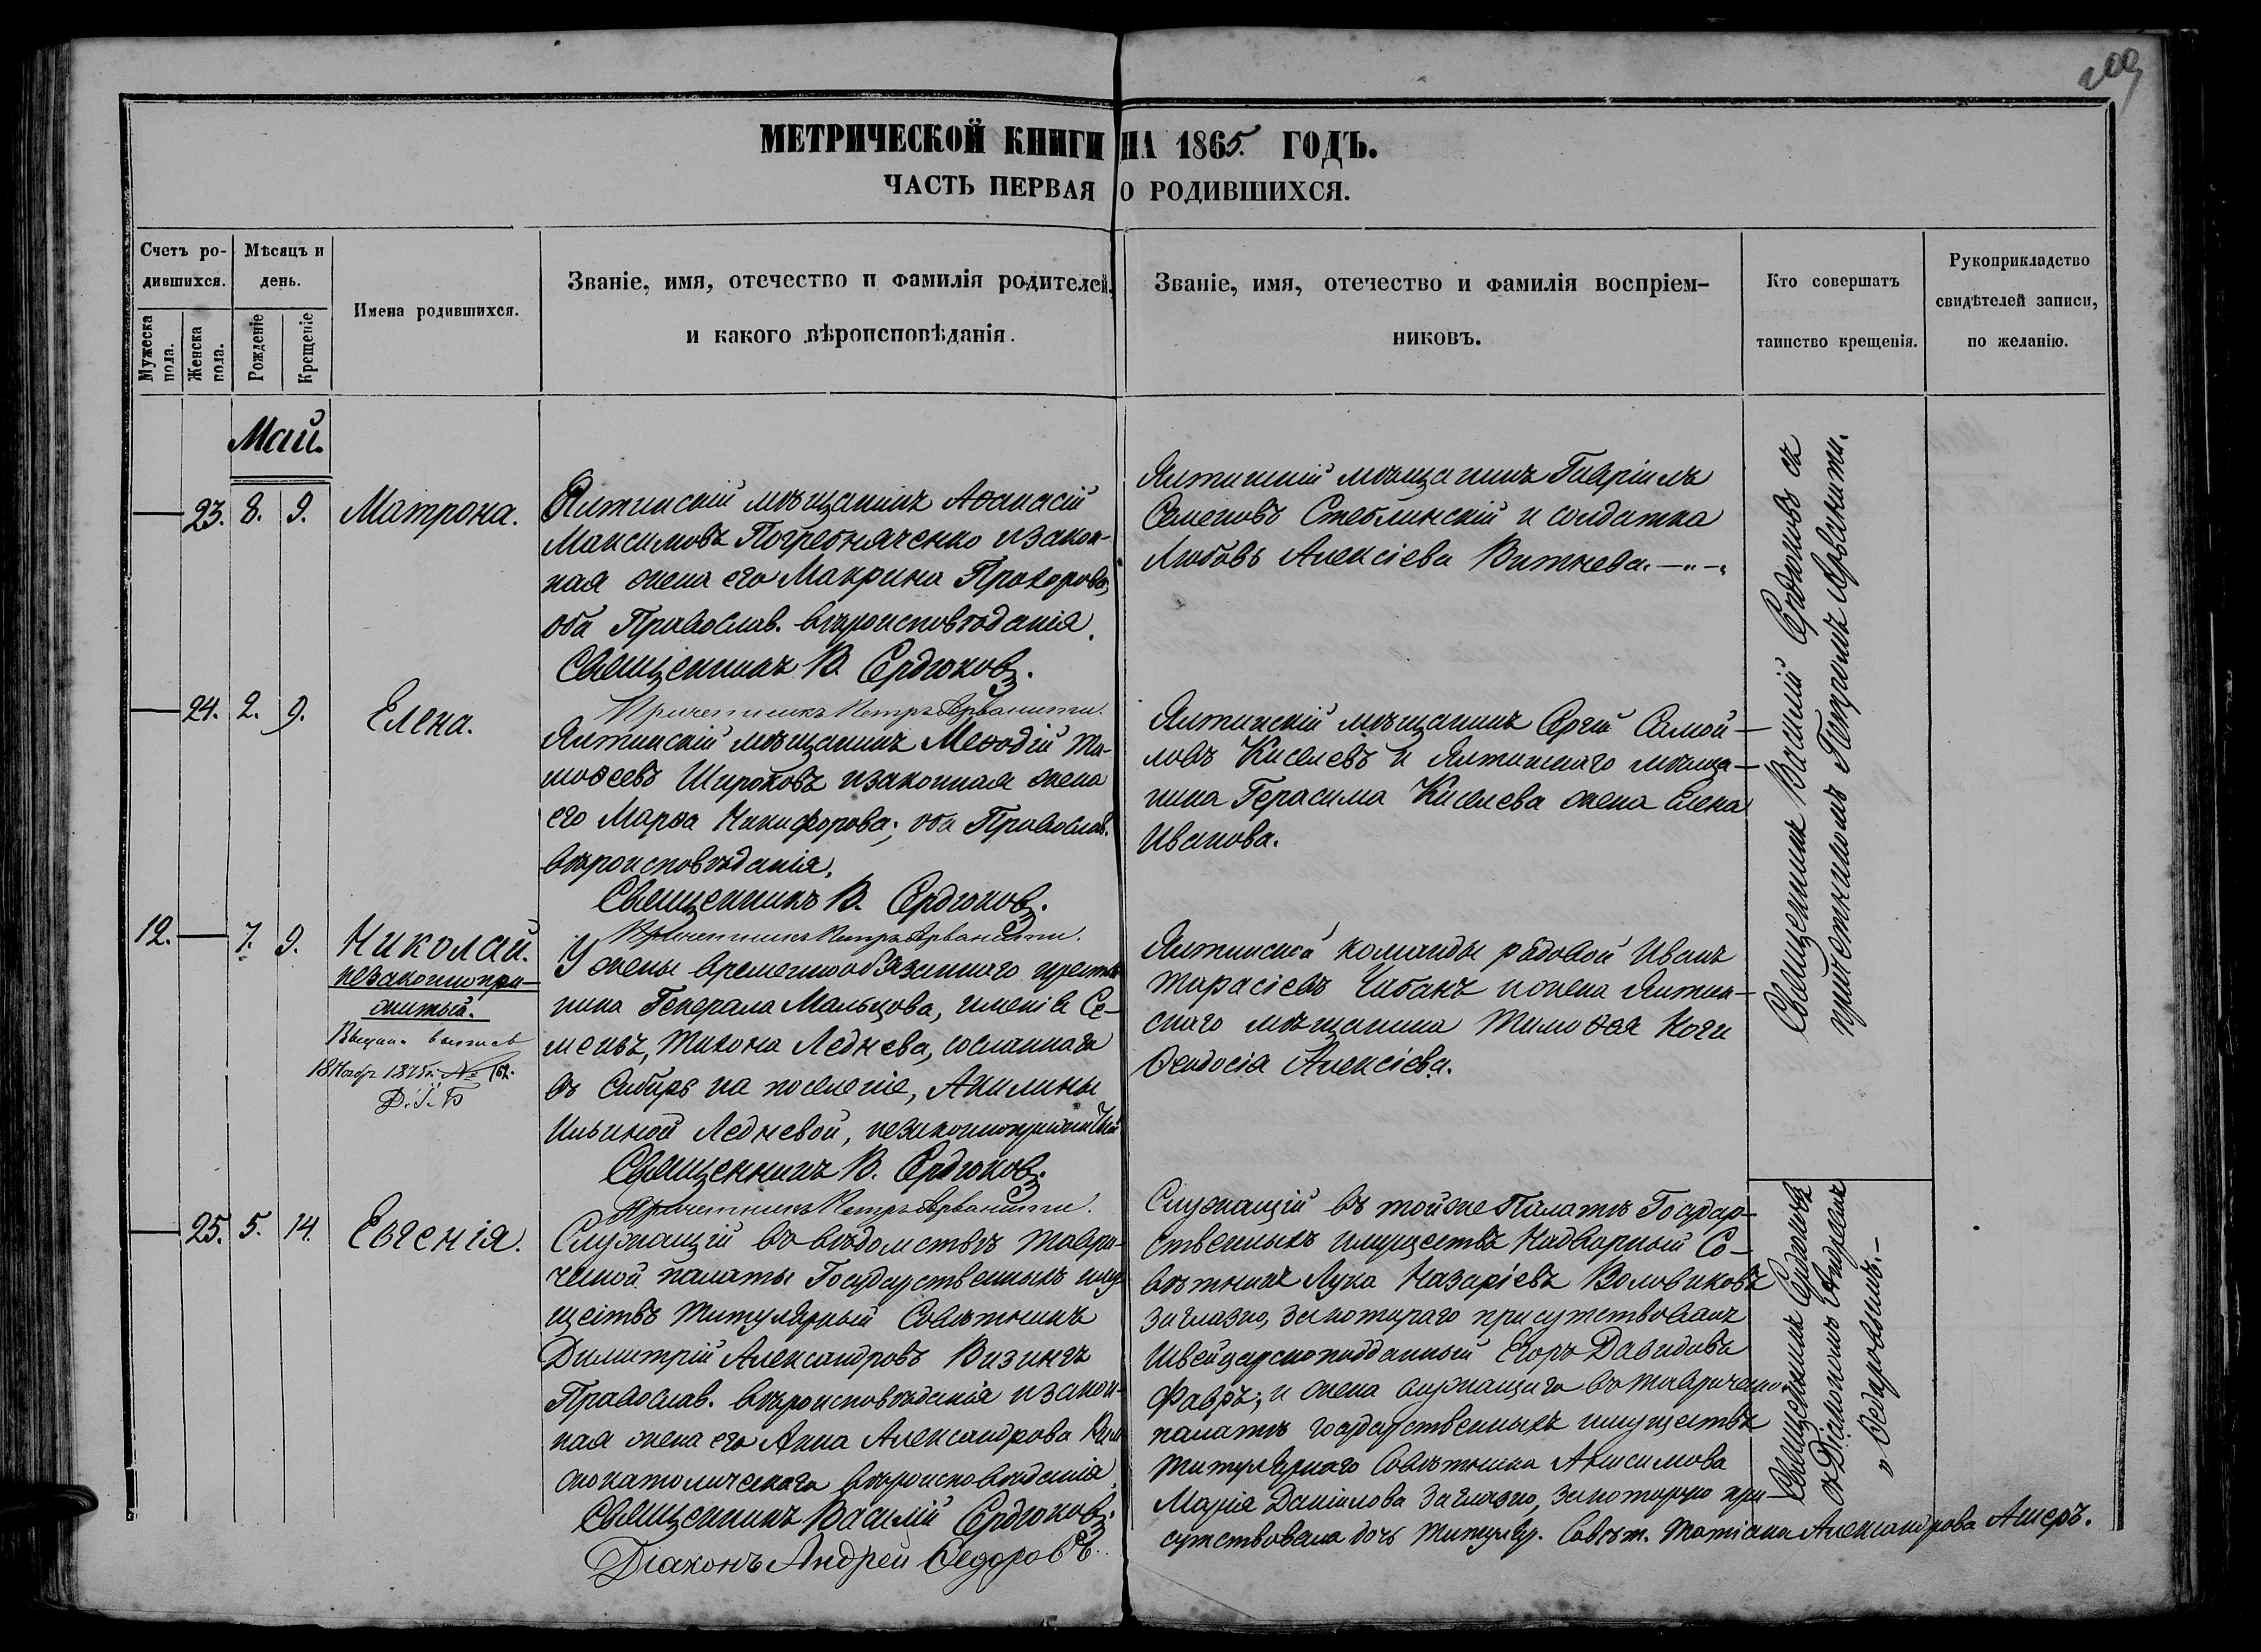 209
МЕТРИЧЕСКОЙ КНИГИ НА 1865. ГОДЪ.
ЧАСТЬ ПЕРВАЯ О РОДИВШИХСЯ.
Счетъ ро-
дившихся.
Мужеска
пола.
Женска
пола.
Мѣсяцъ и
день.
Рожденіе
Крещеніе
Имена родившихся.
Званіе, имя, отечество и фамилія родителей,
и какого вѣроисповѣданія.
Званіе, имя, отечество и фамилія воспріем-
никовъ.
Кто совершатъ
таинство крещенія.
Рукоприкладство
свидѣтелей записи,
по желанію.
Май.
23. 8. 9. Матрона.
Ялтинскій мѣщанинъ Аѳанасій
Максимовъ Погребняченко и закон-
ная жена его Макрина Прохорова,
оба Православ. вѣроисповѣданія.
Священникъ В. Сердюковъ.
Причетникъ Петръ Арванити.
Ялтинскій мѣщанинъ Гавріилъ
Семеновъ Стеблинскій и солдатка
Любовь Алексіева Витнева.
24. 2. 9. Елена.
Ялтинскій мѣщанинъ Меѳодій Ти-
моѳеевъ Широковъ и законная жена
его Марѳа Никифорова; оба Православ.
вѣроисповѣданія.
Священникъ В. Сердюковъ.
Причетникъ Петръ Арванити.
Ялтинскій мѣщанинъ Сергій Самой-
ловъ Киселевъ и Ялтинскаго мѣща-
нина Герасима Киселева жена Елена
Иванова.
12. 7. 9. Николай.
незаконнопри-
житый.
18 Ноябр 1875г. №
У жены временнообязаннаго крестья
нина Генерала Мальцова, имѣнія Се-
меизъ, Тихона Леднева, сосланнаго
въ Сибирь на поселеніе, Акилины
Ильиной Ледневой, незаконноприжитый
Священникъ В. Сердюковъ.
Причетникъ Петръ Арванити.
Ялтинской команды рядовой Иванъ
Тарасіевъ Чабанъ и жена Ялтин-
скаго мѣщанина Тимоѳея Коги
Ѳеодосія Алексіева.
Священникъ Василій Сердюковъ съ
причетникомъ Петромъ Арванити.
25. 5. 14. Евгенія.
Служащій въ вѣдомствѣ Таври-
ческой палаты Государственныхъ иму
ществъ Титулярный Совѣтникъ
Димитрій Александровъ Визингъ
Православ. вѣроисповѣданія и закон-
ная жена его Анна Александрова Рим
скокатолическаго вѣроисповѣданія.
Священникъ Василій Сердюковъ.
Діаконъ Андрей Ѳедоровъ.
Служащій въ той же Палатѣ Государ-
ственныхъ имуществъ Надворный Со-
вѣтникъ Лука Назаріевъ Воловиковъ
заглазно, за котораго присутствовалъ
Швейцарскоподданный Егоръ Давидовъ
Фавръ; и жена служащаго въ Таврической
палатѣ государственныхъ имуществъ
Титулярнаго Совѣтника Анисимова
Марія Даніилова заглазно, за которую при-
сутствовала дочь Титуляр. Совѣт. Татіана Александрова Ашеръ.
Священникъ Сердюковъ
съ Діакономъ Андреемъ
Ѳедоровымъ.